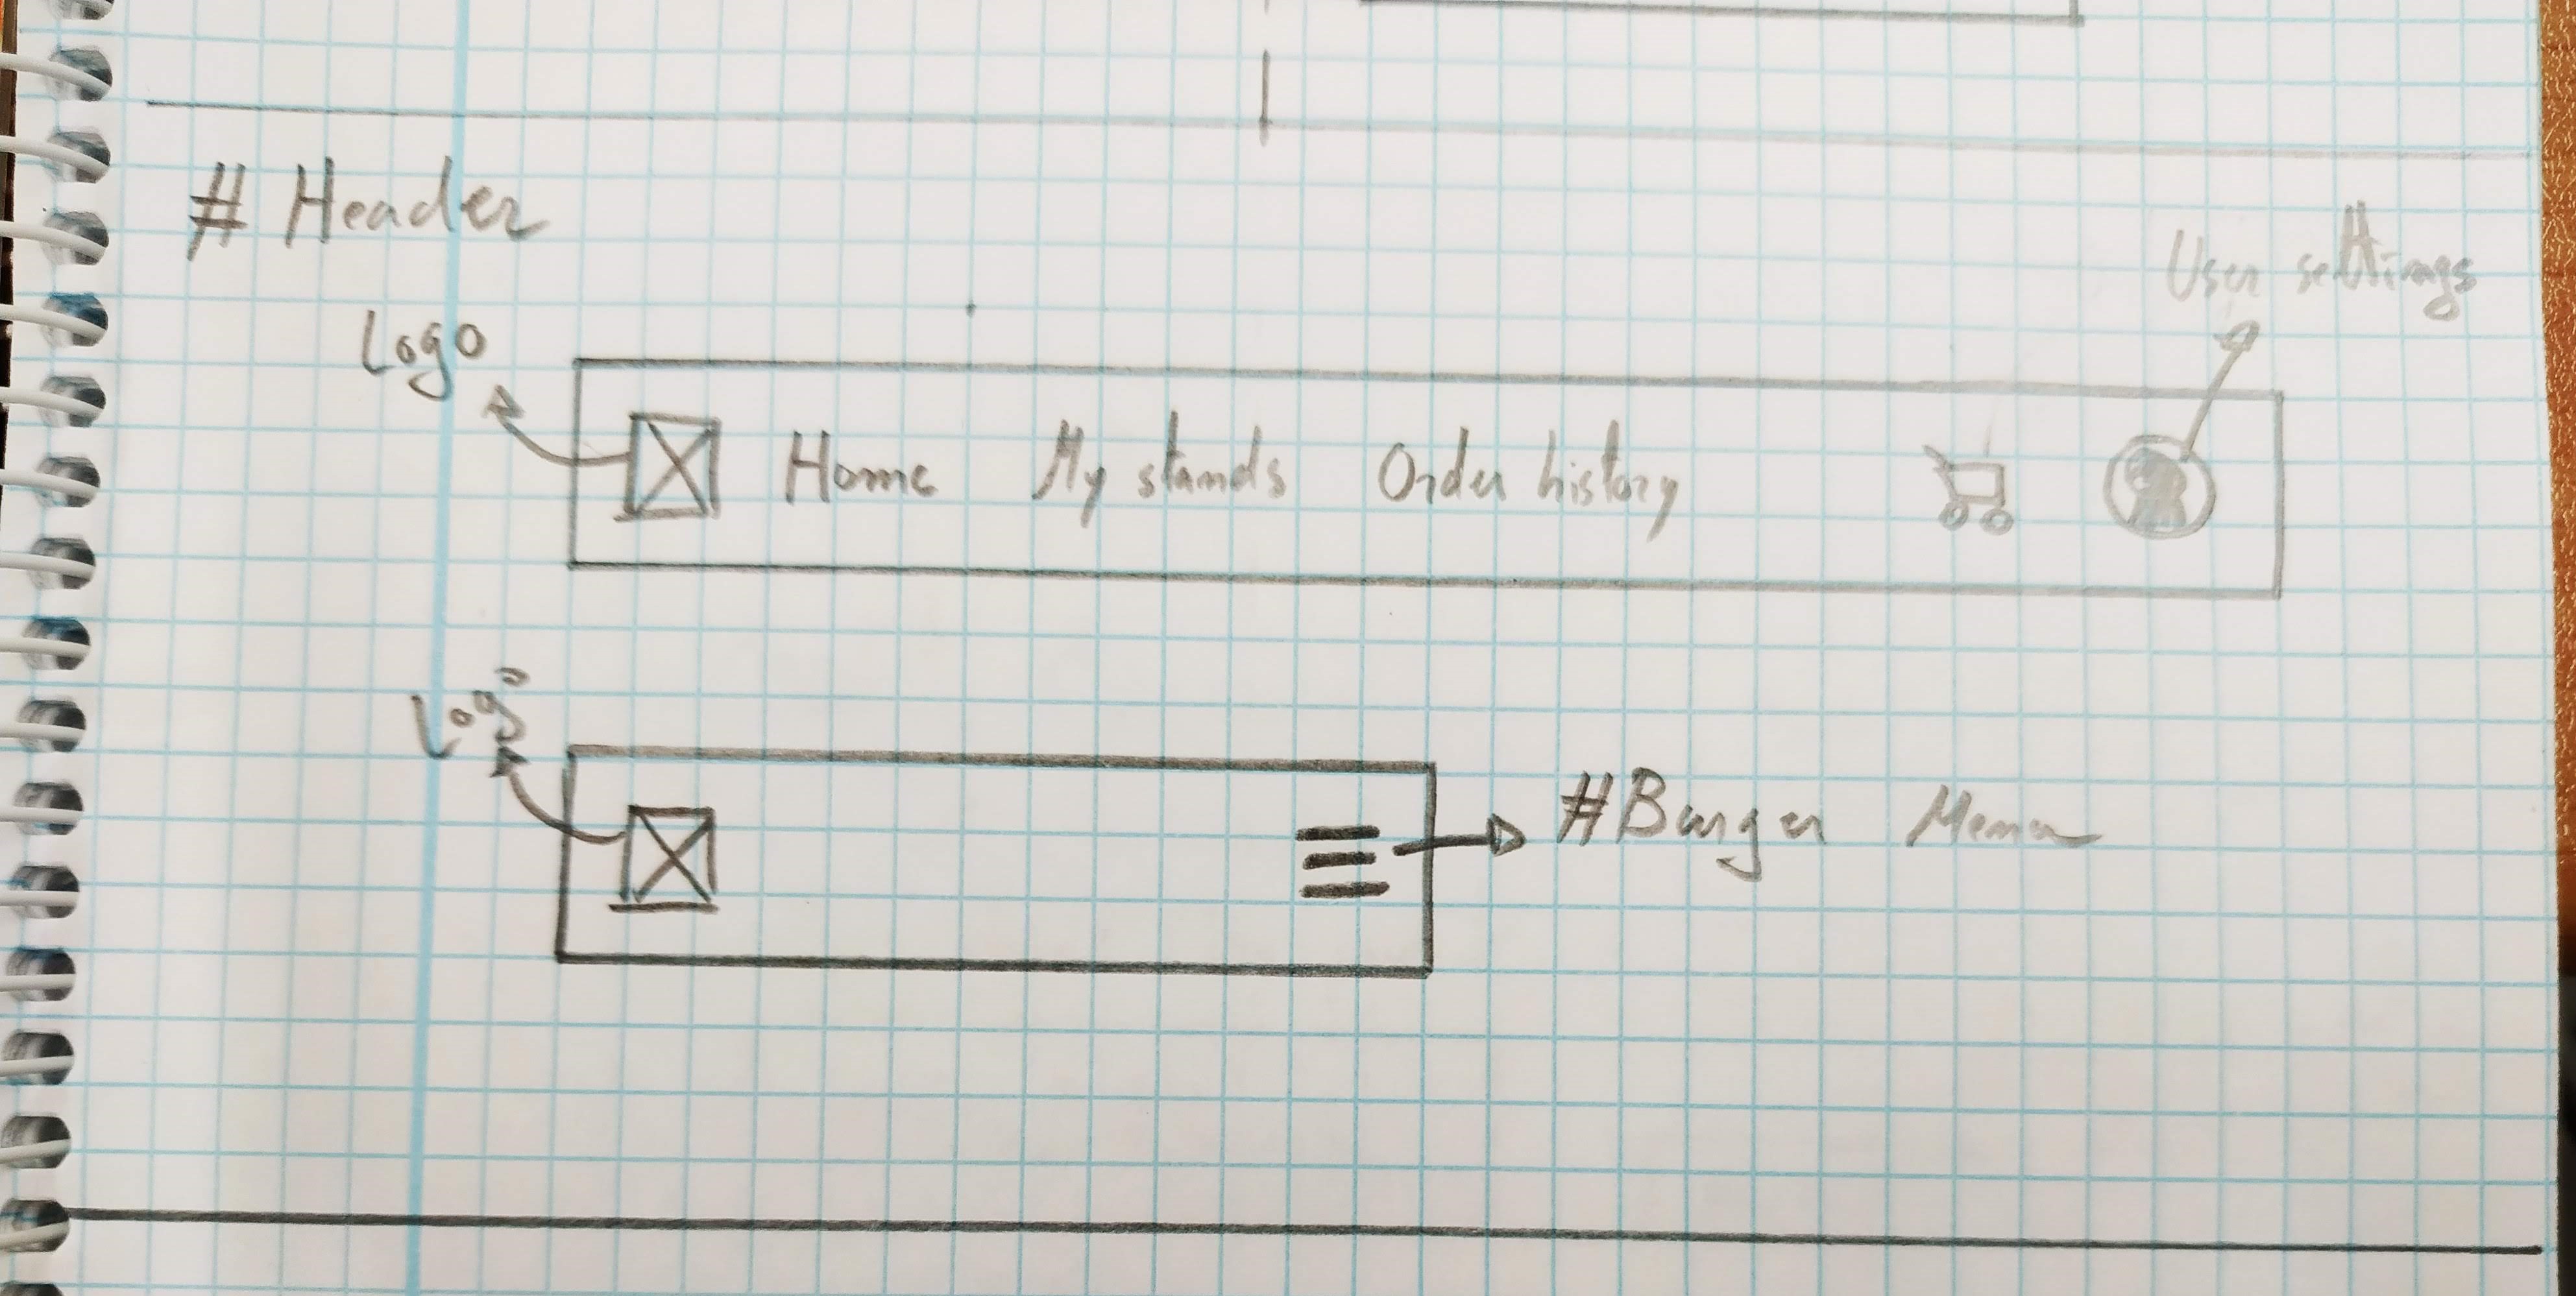 # Header
User settings
Logo
Home My stands Order history
Logo
#Burger Menu